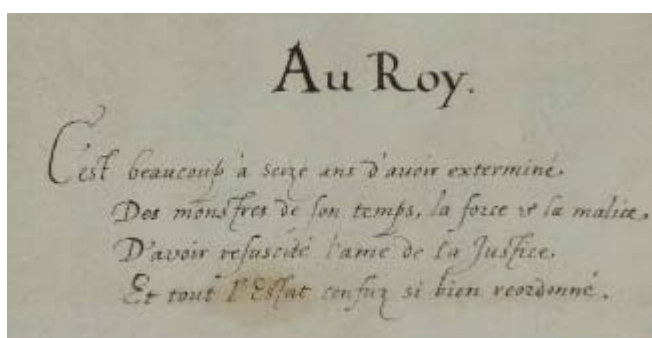 Au Roy.
C'est beaucoup à seize ans d'avoir exterminé.
Des monstres de son temps, la force & la malice,
D'avoir resuscité l'ame de la Justice,
Et tout l'Estat confuz si bien reordonné.